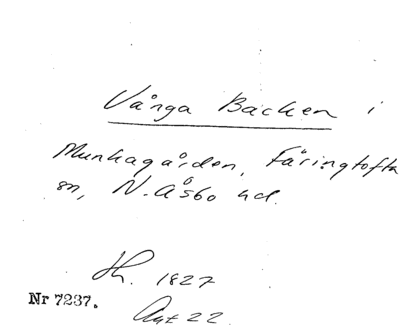 Vånga Backen i
Munkagården, Färingtofta
sn, N. Åsbo hd.
Th. 1827
Nr 7237.
Ant 22